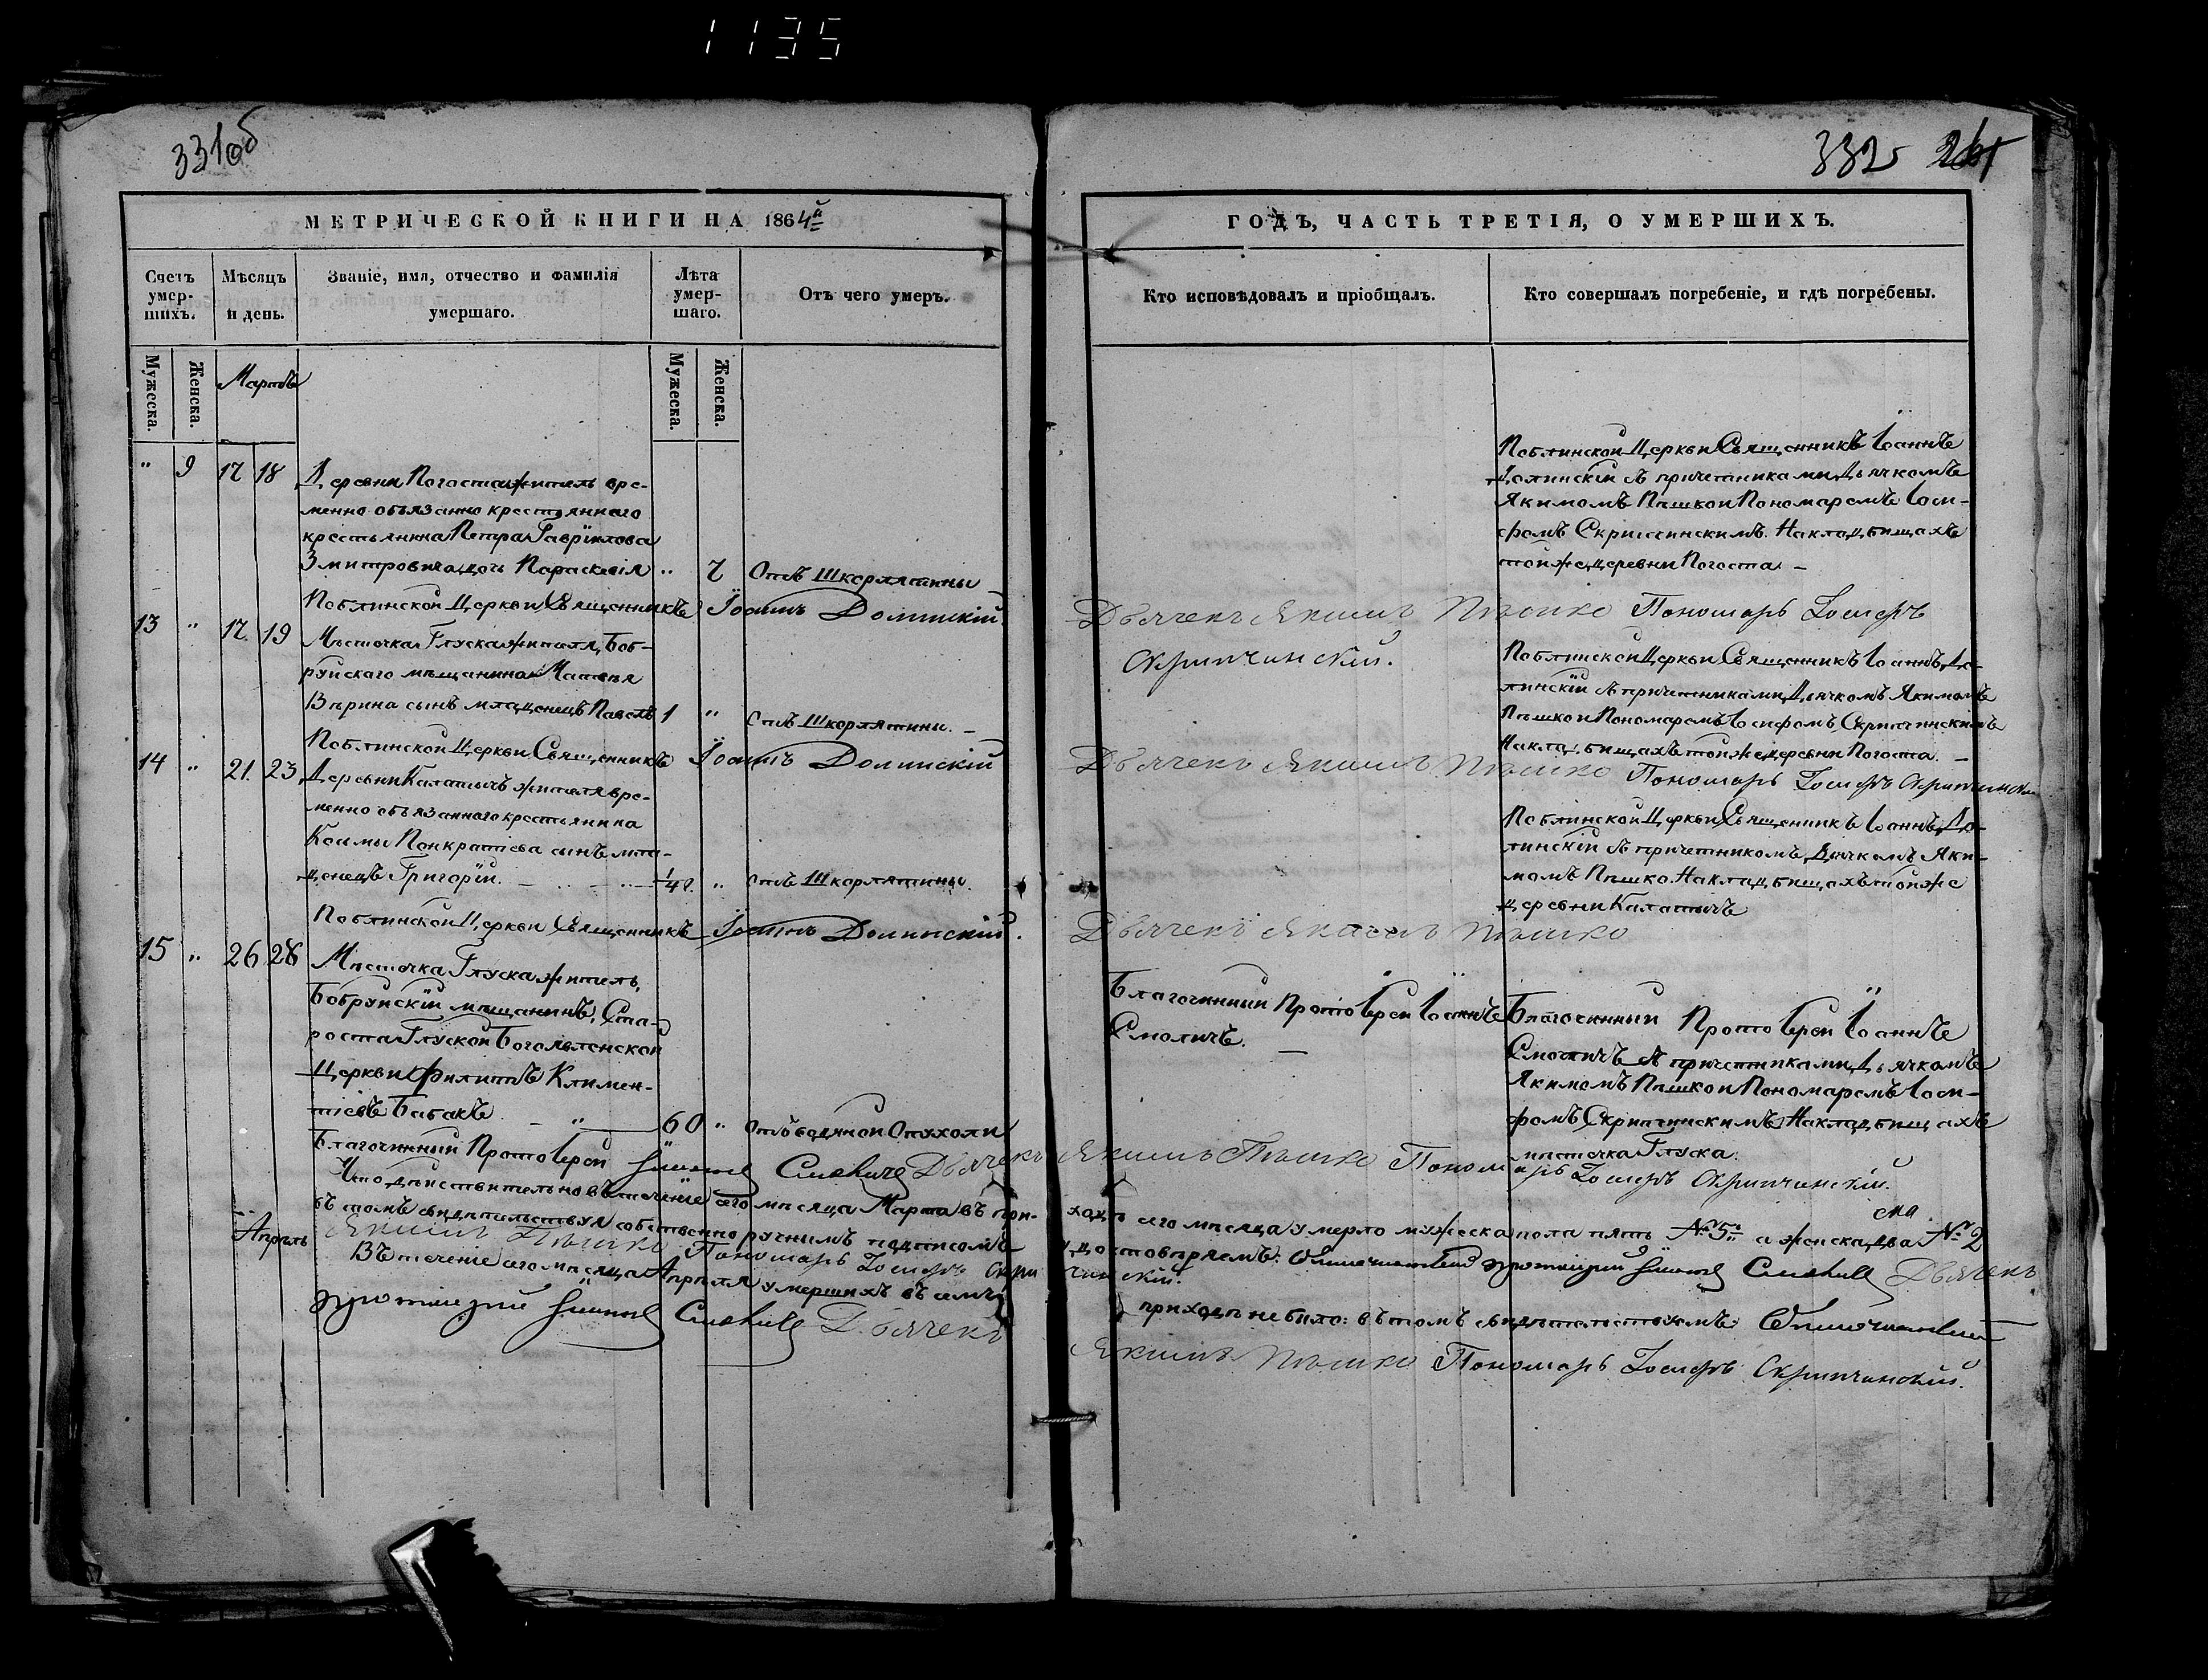 1135
331об
332
МЕТРИЧЕСКОЙ КНИГИ НА 1864й
ГОДЪ, ЧАСТЬ ТРЕТІЯ, О УМЕРШИХЪ.
Счетъ умер-шихъ.
Мѣсяцъ и день.
Званіе, имя, отчество и фамилія умершаго.
Лѣта умер-шаго.
Отъ чего умеръ.
Кто исповѣдовалъ и пріобщалъ.
Кто совершалъ погребеніе, и гдѣ погребены.
Мужеска.
Женска.
Мартъ
Мужеска.
Женска.
" 9 17 18
Деревни Погоста житель вре-
менно обязанно крестьяннаго
крестьянина Петра Гавріилова
Змитровича дочь Параскевія " 7 Отъ Шкарлятины
Поблинской Церкви Священникъ Іоаннъ
Долинскій съ причетниками Дьячкомъ
Якимомъ Пѣшко и Пономаремъ Іоси-
фомъ Скрипчинскимъ. На кладбищахъ
той же деревни Погоста —
Поблинской Церкви Священникъ Іоаннъ Долинскій.
Дьячекъ Якимъ Пѣшко Пономарь Іосифъ
Скрипчинскій.
13 " 17. 19
Мѣстечка Глуска жителя, Боб-
руйскаго мѣщанина Матвѣя
Вѣрина сынъ младенецъ Павелъ 1 " отъ Шкарлятины. —
Поблинской Церкви Священникъ Іоаннъ До-
линскій съ причетниками, Дьячкомъ Якимомъ
Пѣшко и Пономаремъ Іосифомъ Скрипчинскимъ
На кладбищахъ той же деревни Погоста. —
Поблинской Церкви Священникъ Іоаннъ Долинскій
Дьячекъ Якимъ Пѣшко Пономарь Іосифъ Скрипчинскій
14 " 21. 23
Деревни Калатычъ жителя вре-
менно обязаннаго крестьянина
Косьмы Панкратіева сынъ мла-
денецъ Григорій. 1/4 г. " отъ Шкарлятины.
Поблинской Церкви Священникъ Іоаннъ До-
линскій съ причетникомъ, Дьячкомъ Яки-
момъ Пѣшко. На кладбищахъ той же
деревни Калатычъ
Поблинской Церкви Священникъ Іоаннъ Долинскій.
Дьячекъ Якимъ Пѣшко
15 " 26 28
Мѣстечка Глуска житель,
Бобруйскій мѣщанинъ, Ста-
роста Глуской Богоявленской
Церкви Филиппъ Климен-
тіевъ Бабакъ — " 60 " отъ водяной Опухоли
Благочинный Протоіерей Іоаннъ
Смоличъ. —
Благочинный Протоіерей Іоаннъ
Смоличъ съ причетниками, Дьячкомъ
Якимомъ Пѣшко и Пономаремъ Іоси-
фомъ Скрипчинскимъ. На кладбищахъ
мѣстечка Глуска.
Благочинный Протоіерей Іоаннъ Смоличъ Дьячекъ Якимъ Пѣшко Пономарь Іосифъ Скрипчинскій.
Что дѣйствительно въ теченіе сего мѣсяца Марта въ при-
ходѣ сего мѣсяца умерло мужеска пола пять № 5й а женска два № 2
въ томъ свидѣтельствуя собственно ручнымъ подписомъ
удостовѣряемъ: Благочинный Протоіерей Іоаннъ Смоличъ Дьячекъ
Якимъ Пѣшко Пономарь Іосифъ Скрипчинскій.
Апрѣль
Въ теченіе сего мѣсяца Апрѣля умершихъ въ семъ
приходѣ не было: въ томъ свидѣтельствуемъ: Благочинный
Протоіерей Іоаннъ Смоличъ Дьячекъ
Якимъ Пѣшко Пономарь Іосифъ Скрипчинскій.